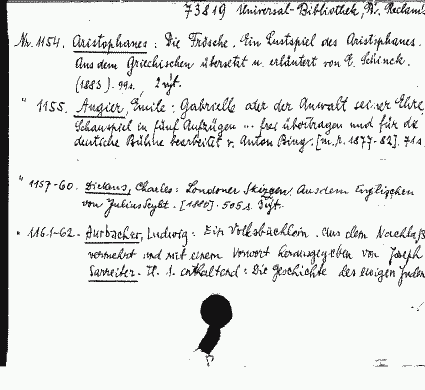 73819 Universal-Bibliothek, Ph. Reclam's
Nr. 1154. Aristophanes: Die Frösche. Ein Lustspiel des Aristophanes.
Aus dem Griechischen übersetzt u. erläutert von E. Schinck.
(1883). 99s., 2
" 1155. Augier, Emile: Gabrielle oder der Anwalt seiner Ehre,
Schauspiel in fünf Aufzügen ... frei übertragen und für die
deutsche Bühne bearbeitet v. Anton Bing. [1877-82]. 71s.
" 1157-60. Dickens, Charles: Londoner Skizzen. Aus dem Englischen
von Julius Seybt. [1880]. 505s.
" 1161-62. Aurbacher, Ludwig: Ein Volksbüchlein. Aus dem Nachlaß
vermehrt und mit einem Vorwort herausgegeben von Joseph
Sarreiter. T. 1. enthaltend: Die Geschichte des ewigen Juden